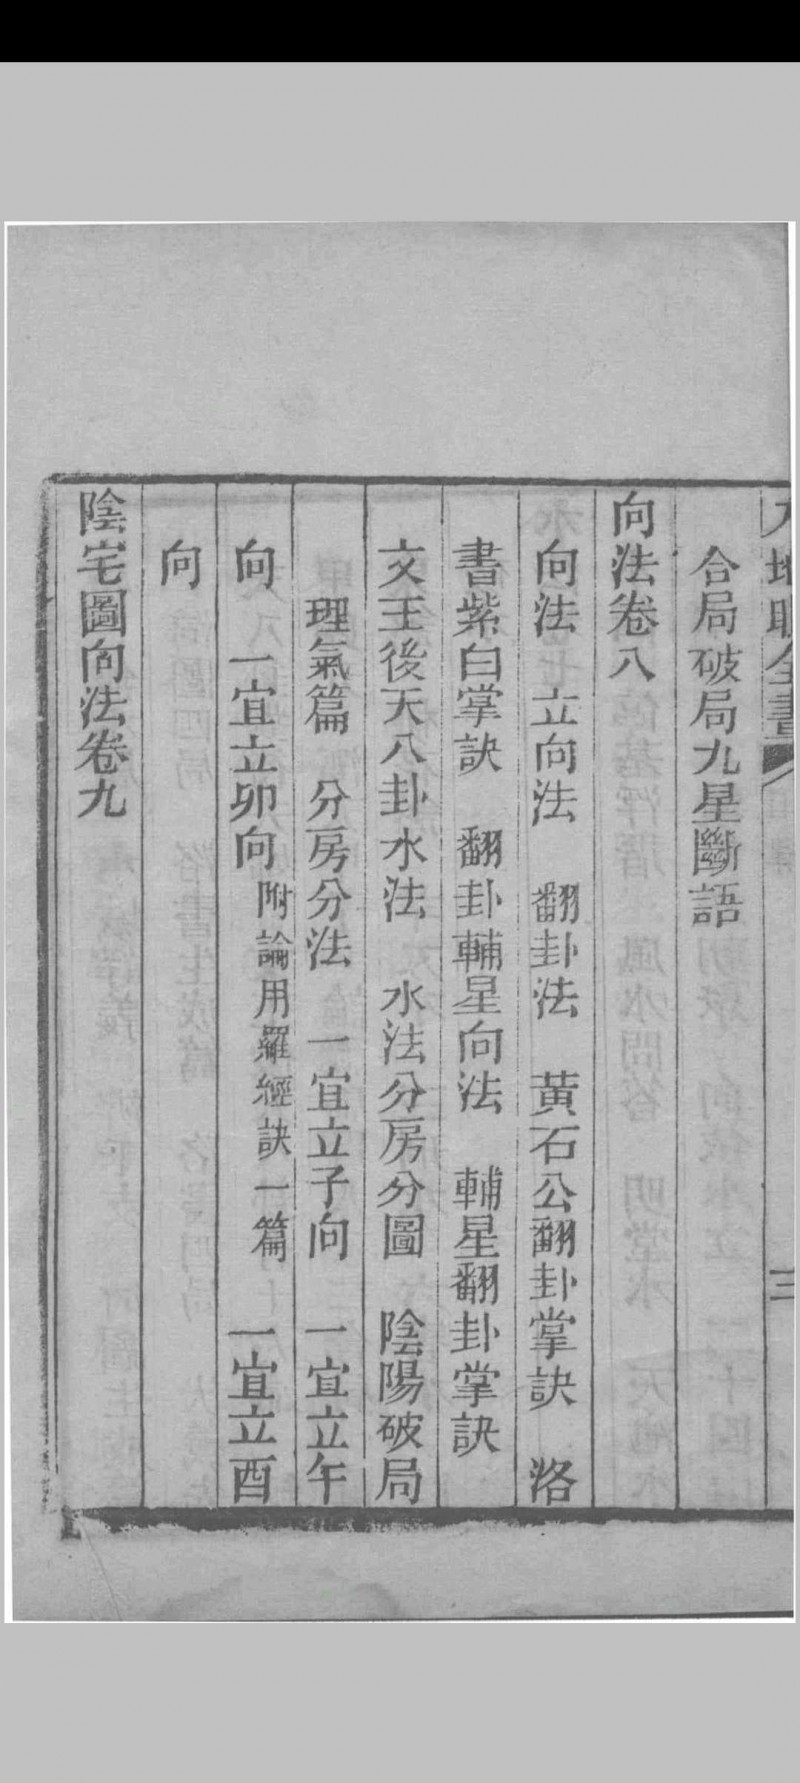 全書
三
合局破局九星斷語
向法卷八
向法 立向法 翻卦法 黃石公翻卦掌訣 洛
書紫白掌訣 翻卦輔星向法 輔星翻卦掌訣
文王後天八卦水法 水法分房分圖 陰陽破局
理氣篇 分房分法 一宜立子向 一宜立午
向 一宜立卯向 附論用羅經訣一篇 一宜立酉
向
陰宅圖向法卷九